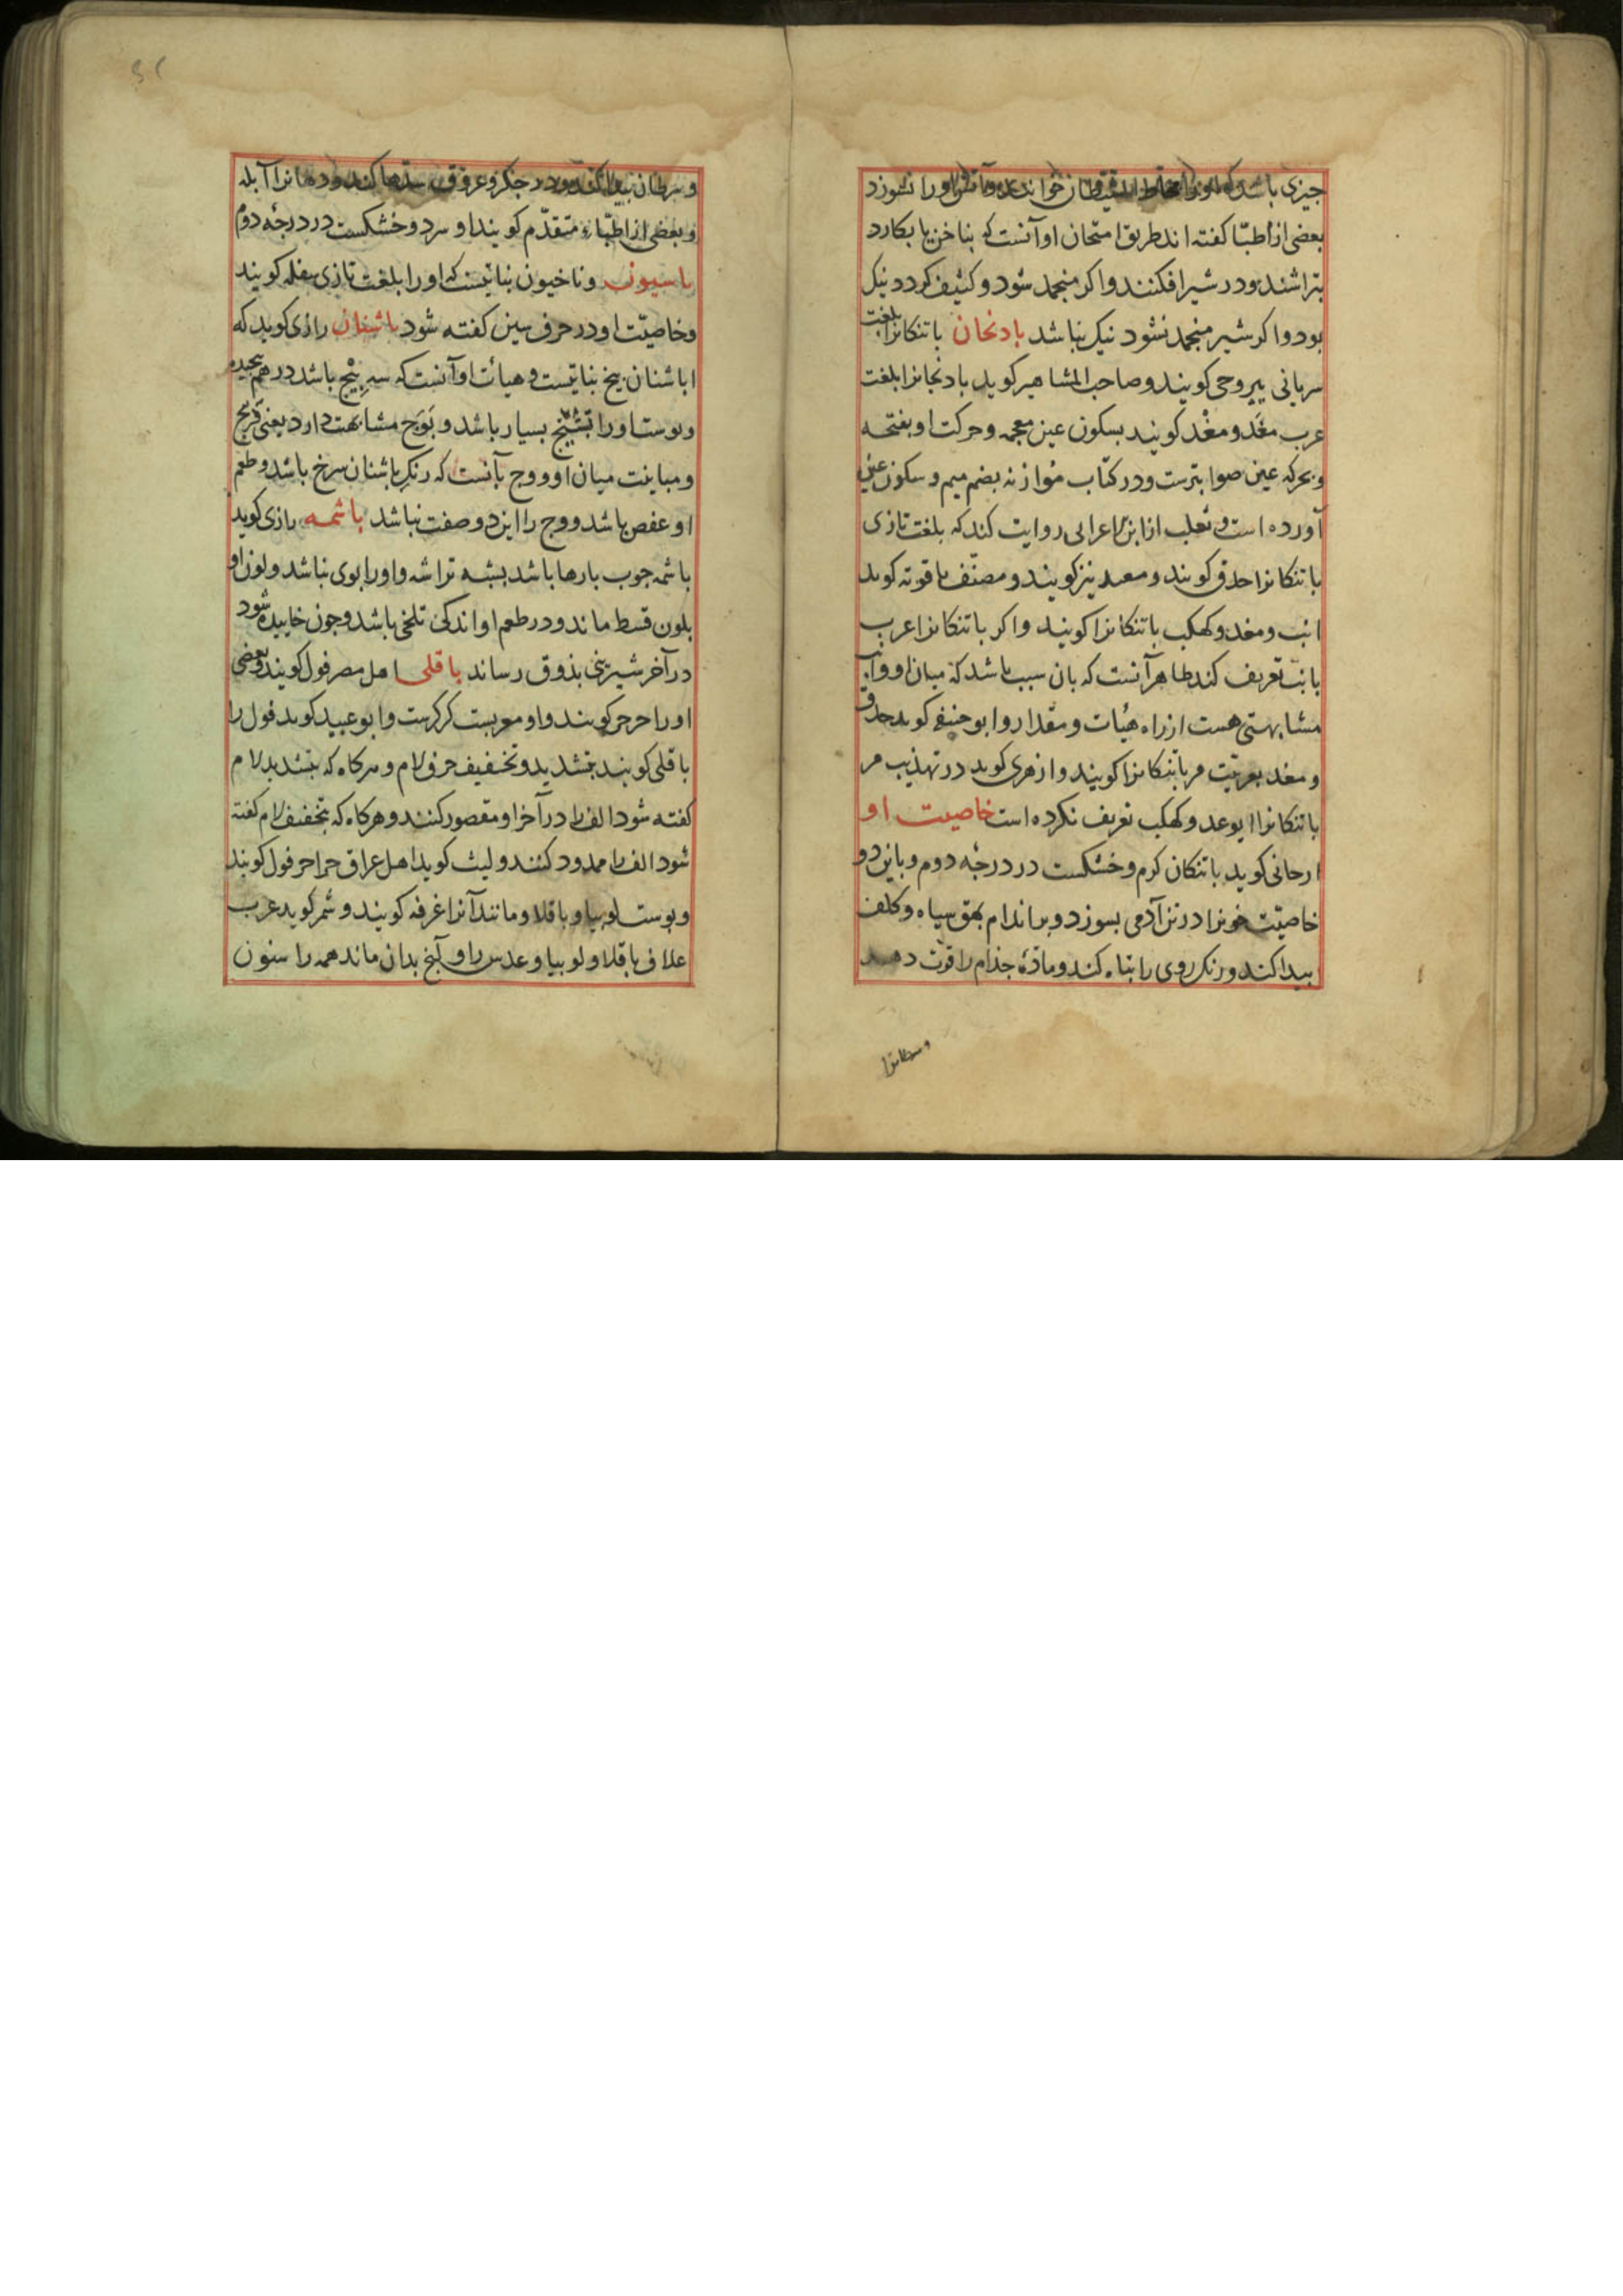 جیزی باشد که او را خوانند و آتش او را نسوزد
بعضی از اطبّا کفته اند طریق امتحان او آنست که بناخن یا بکارد
بتراشند و در شیر افکنند و اکر منجمد شود و کثیف کردد نیک
بود و اکر شیر منجمد نشود نیک نباشد بادنجان باتنکانرا بلغت
سریانی بیروحی کویند و صاحب المشاهیر کوید بادنجانرا بلغت
عرب مغَد و مغْد کویند بسکون عین معجمه و حرکت او بفتحه
و بحرکه عین صوابترست و در کتاب موازنه بضم میم و سکون عین
آورده است و ثعلب از ابن اعرابی روایت کند که بلغت تازی
باتنکانرا حدق کویند و معد نیز کویند و مصنّف یاقوته کوید
انب و مغد و کهکب باتنکانرا کویند و اکر باتنکانرا عرب
بانب تعریف کند ظاهر آنست که بان سبب باشد که میان او و انب
مشابهتی هست از راه هیات و مقدار و ابو حنیفه کوید حدق
و مغد بعربیّت مر باتنکانرا کویند و ازهری کوید در تهذیب مر
باتنکانرا و کهکب تعریف نکرده است خاصیت او
ارحانی کوید باتنکان کرم و خشکست در درجهٔ دوم و باین دو
خاصیّت خونرا در تن آدمی بسوزد و بر اندام بهق سیاه و کلف
پیدا کند و رنک روی را تباه کند و مادّهٔ جذام را قوّت دهد
و سرطانرا
و سرطان پیدا کند و در جکر و عروق سدّها کند و دهانرا آبله
و بعضی از اطبّاء متقدّم کویند او سرد و خشکست در درجهٔ دوم
باسیون و ناخیون نباتیست که او را بلغت تازی کویند
و خاصیّت او در حرف سین کفته شود باشنان رازی کوید که
اباشنان بیخ نباتیست و هیأت او آنست که سه بیخ باشد در هم پیچیده
و پوست او را تشنّج بسیار باشد و بوَج مشابهت دارد یعنی
و مباینت میان او و وج بآنست که رنک باشنان سرخ باشد و طعم
او عفص باشد و وج را این دو صفت نباشد باشمه رازی کوید
باشمه جوب بارها باشد بشبه تراشه و او را بوی نباشد و لون او
بلون قسط ماند و در طعم او اندکی تلخی باشد و جون خاییده شود
در آخر شیرینی بذوق رساند باقلی اهل مصر فول کویند و بعضی
او را جرجر کویند و او معربست کرکرست و ابو عبید کوید فول را
باقلی کویند بتشدید و تخفیف حرف لام و هرکاه که بتشدید لام
کفته شود الف را در آخر او مقصور کنند و هرکاه که بتخفیف لام کفته
شود الف را ممدود کنند و لیث کوید اهل عراق جراجر فول کویند
و پوست لوبیا و باقلا و مانند آنرا غرفه کویند و شمر کوید عرب
علاف باقلا و لوبیا و عدس را و آنج بدان ماند همه را سنون